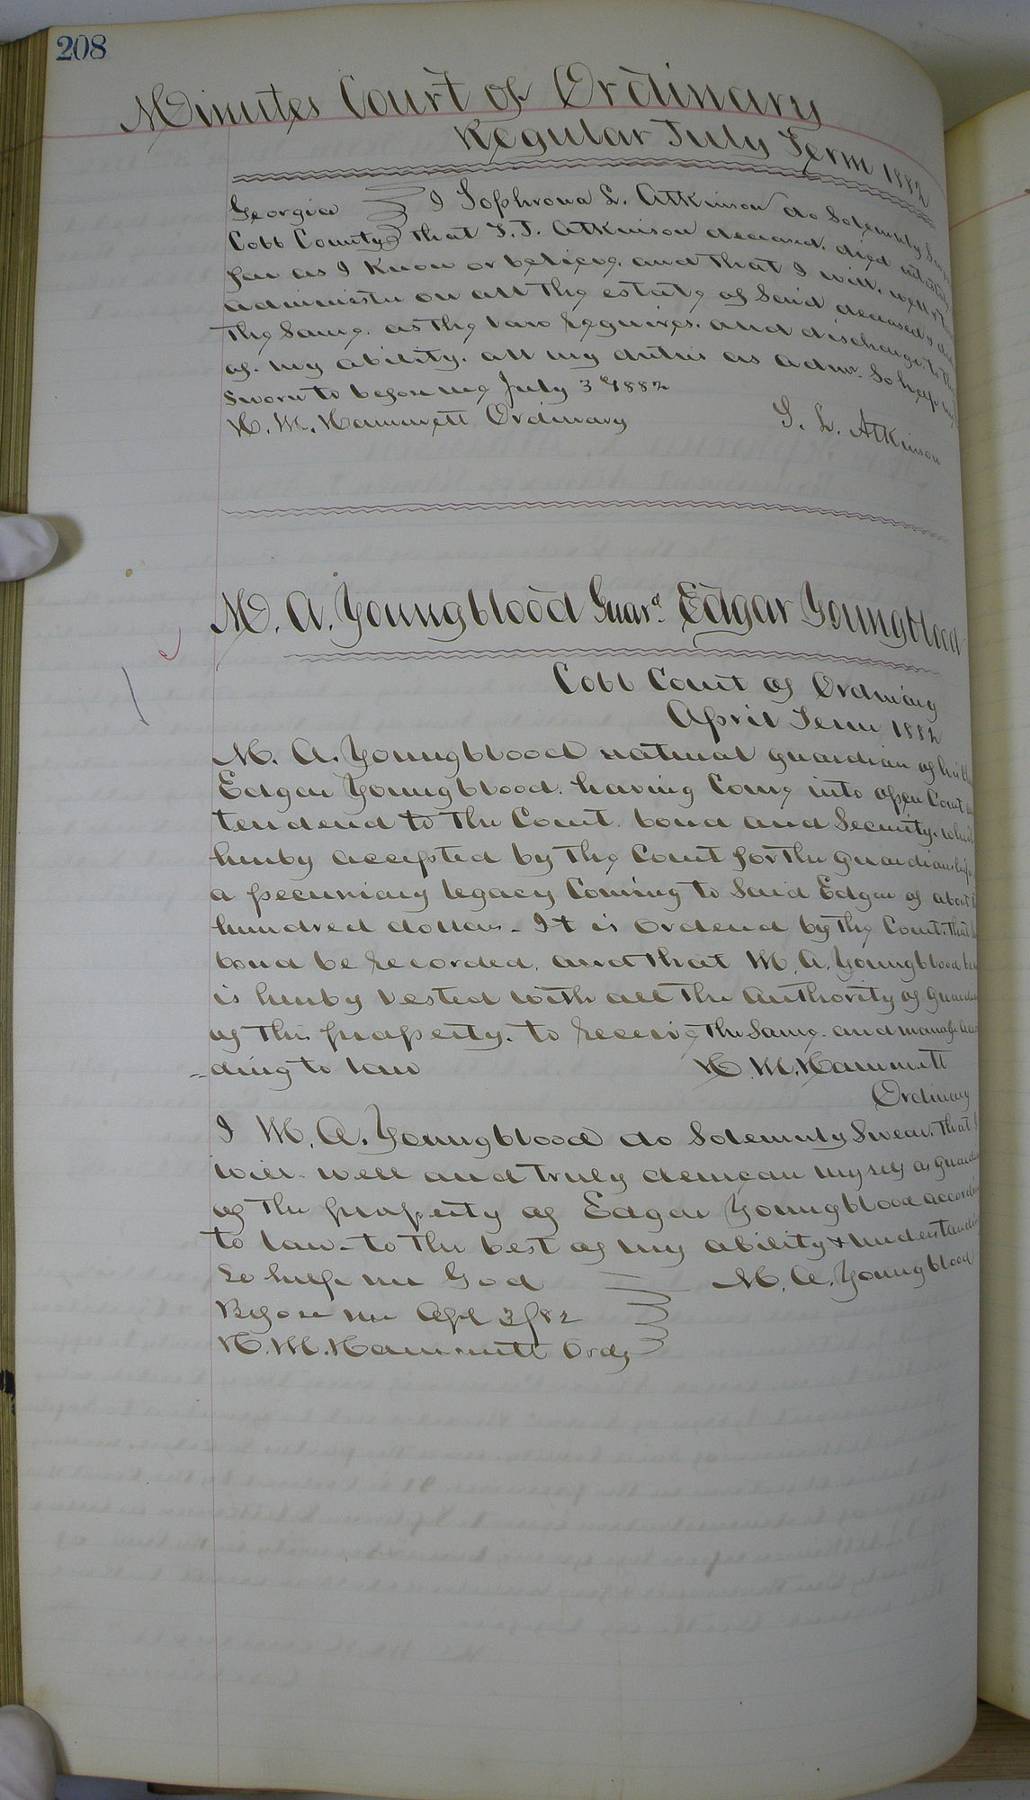 208
Minutes Court of Ordinary
Regular July Term 1882
Georgia I Sophrona L. Atkinson do Solemnly
Cobb County that T. J. Atkinson deceased, died
far as I Know or believe, and that I will, well &
administer on all the estate of Said deceased &
the Same, as the law requires, and discharge to the
of my ability, all my duties as Admr. So help me
Sworn to before me July 3d 1882
H. M. Hammett Ordinary S. L. Atkinson
M. A. Youngblood Guard. Edgar Youngblood
Cobb Court of Ordinary
April Term 1882
M. A. Youngblood natural guardian of
Edgar Youngblood, having Come into open Court
tendered to the Court, bond and Security, which
hereby accepted by the Court for the guardianship
a pecuniary legacy Coming to Said Edgar of about
hundred dollars. It is Ordered by the Court, that
bond be recorded, and that M. A. Youngblood
is hereby vested with all the Authority of
of the property, to receive the Same, and manage
ding to law H. M. Hammett
Ordinary
I M. A. Youngblood do Solemnly Swear, that I
will, well and truly demean myself as
of the property of Edgar Youngblood
to law, to the best of my ability & understanding
So help me God M. A. Youngblood
Before me Apl 3/82
H. M. Hammett Ordy